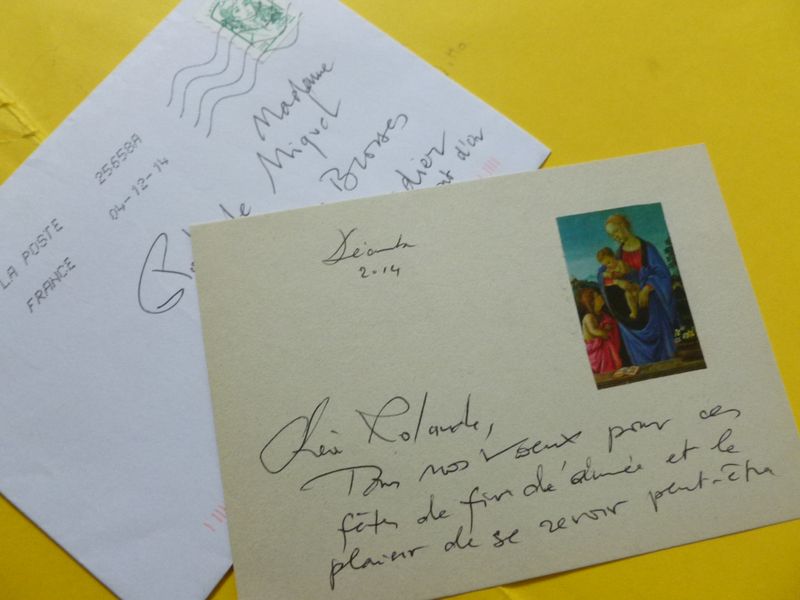 LA POSTE
25658A
FRANCE
04-12-14
Madame
Miquel
Brosses
d'or
Décembre
2014
Chère Rolande,
Tous nos vœux pour ces
fêtes de fin d'année et le
plaisir de se revoir peut-être